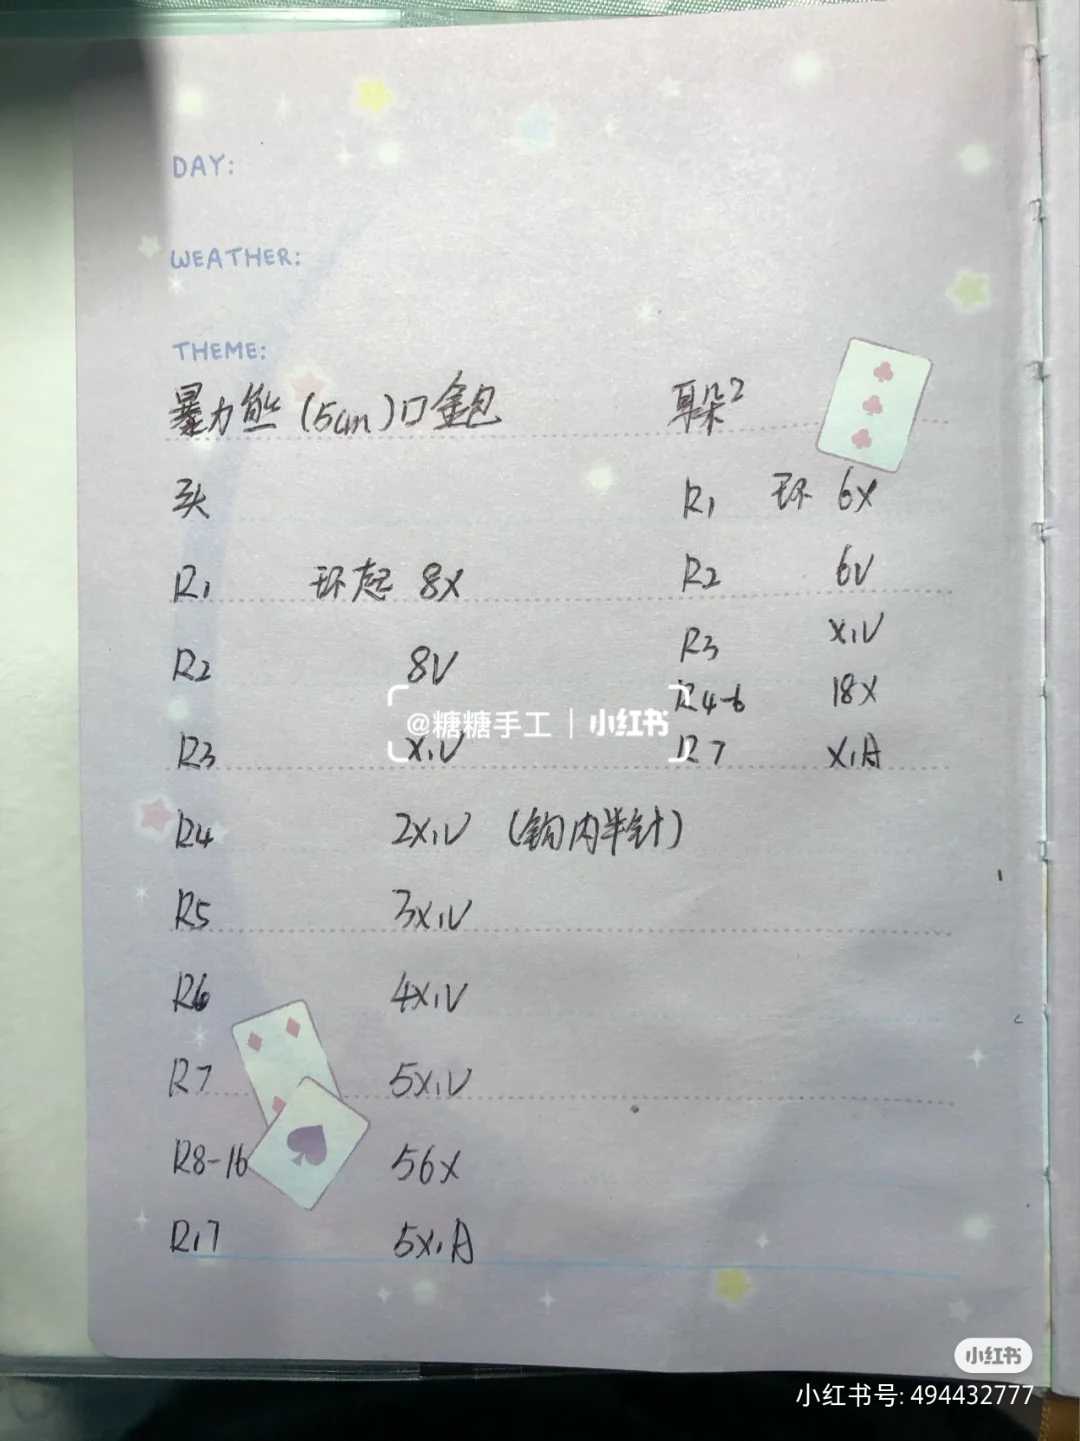 DAY:
WEATHER:
THEME:
暴力熊 (5cm) 口金包
头
R1 环起 8X
R2 8V
R3 X,V
R4 2X,V (钩内半针)
R5 3X,V
R6 4X,V
R7 5X,V
R8-16 56X
R17 5X,A
耳朵2
R1 环 6X
R2 6V
R3 X,V
R4-6 18X
R7 X,A
@糖糖手工 | 小红书
小红书
小红书号: 494432777